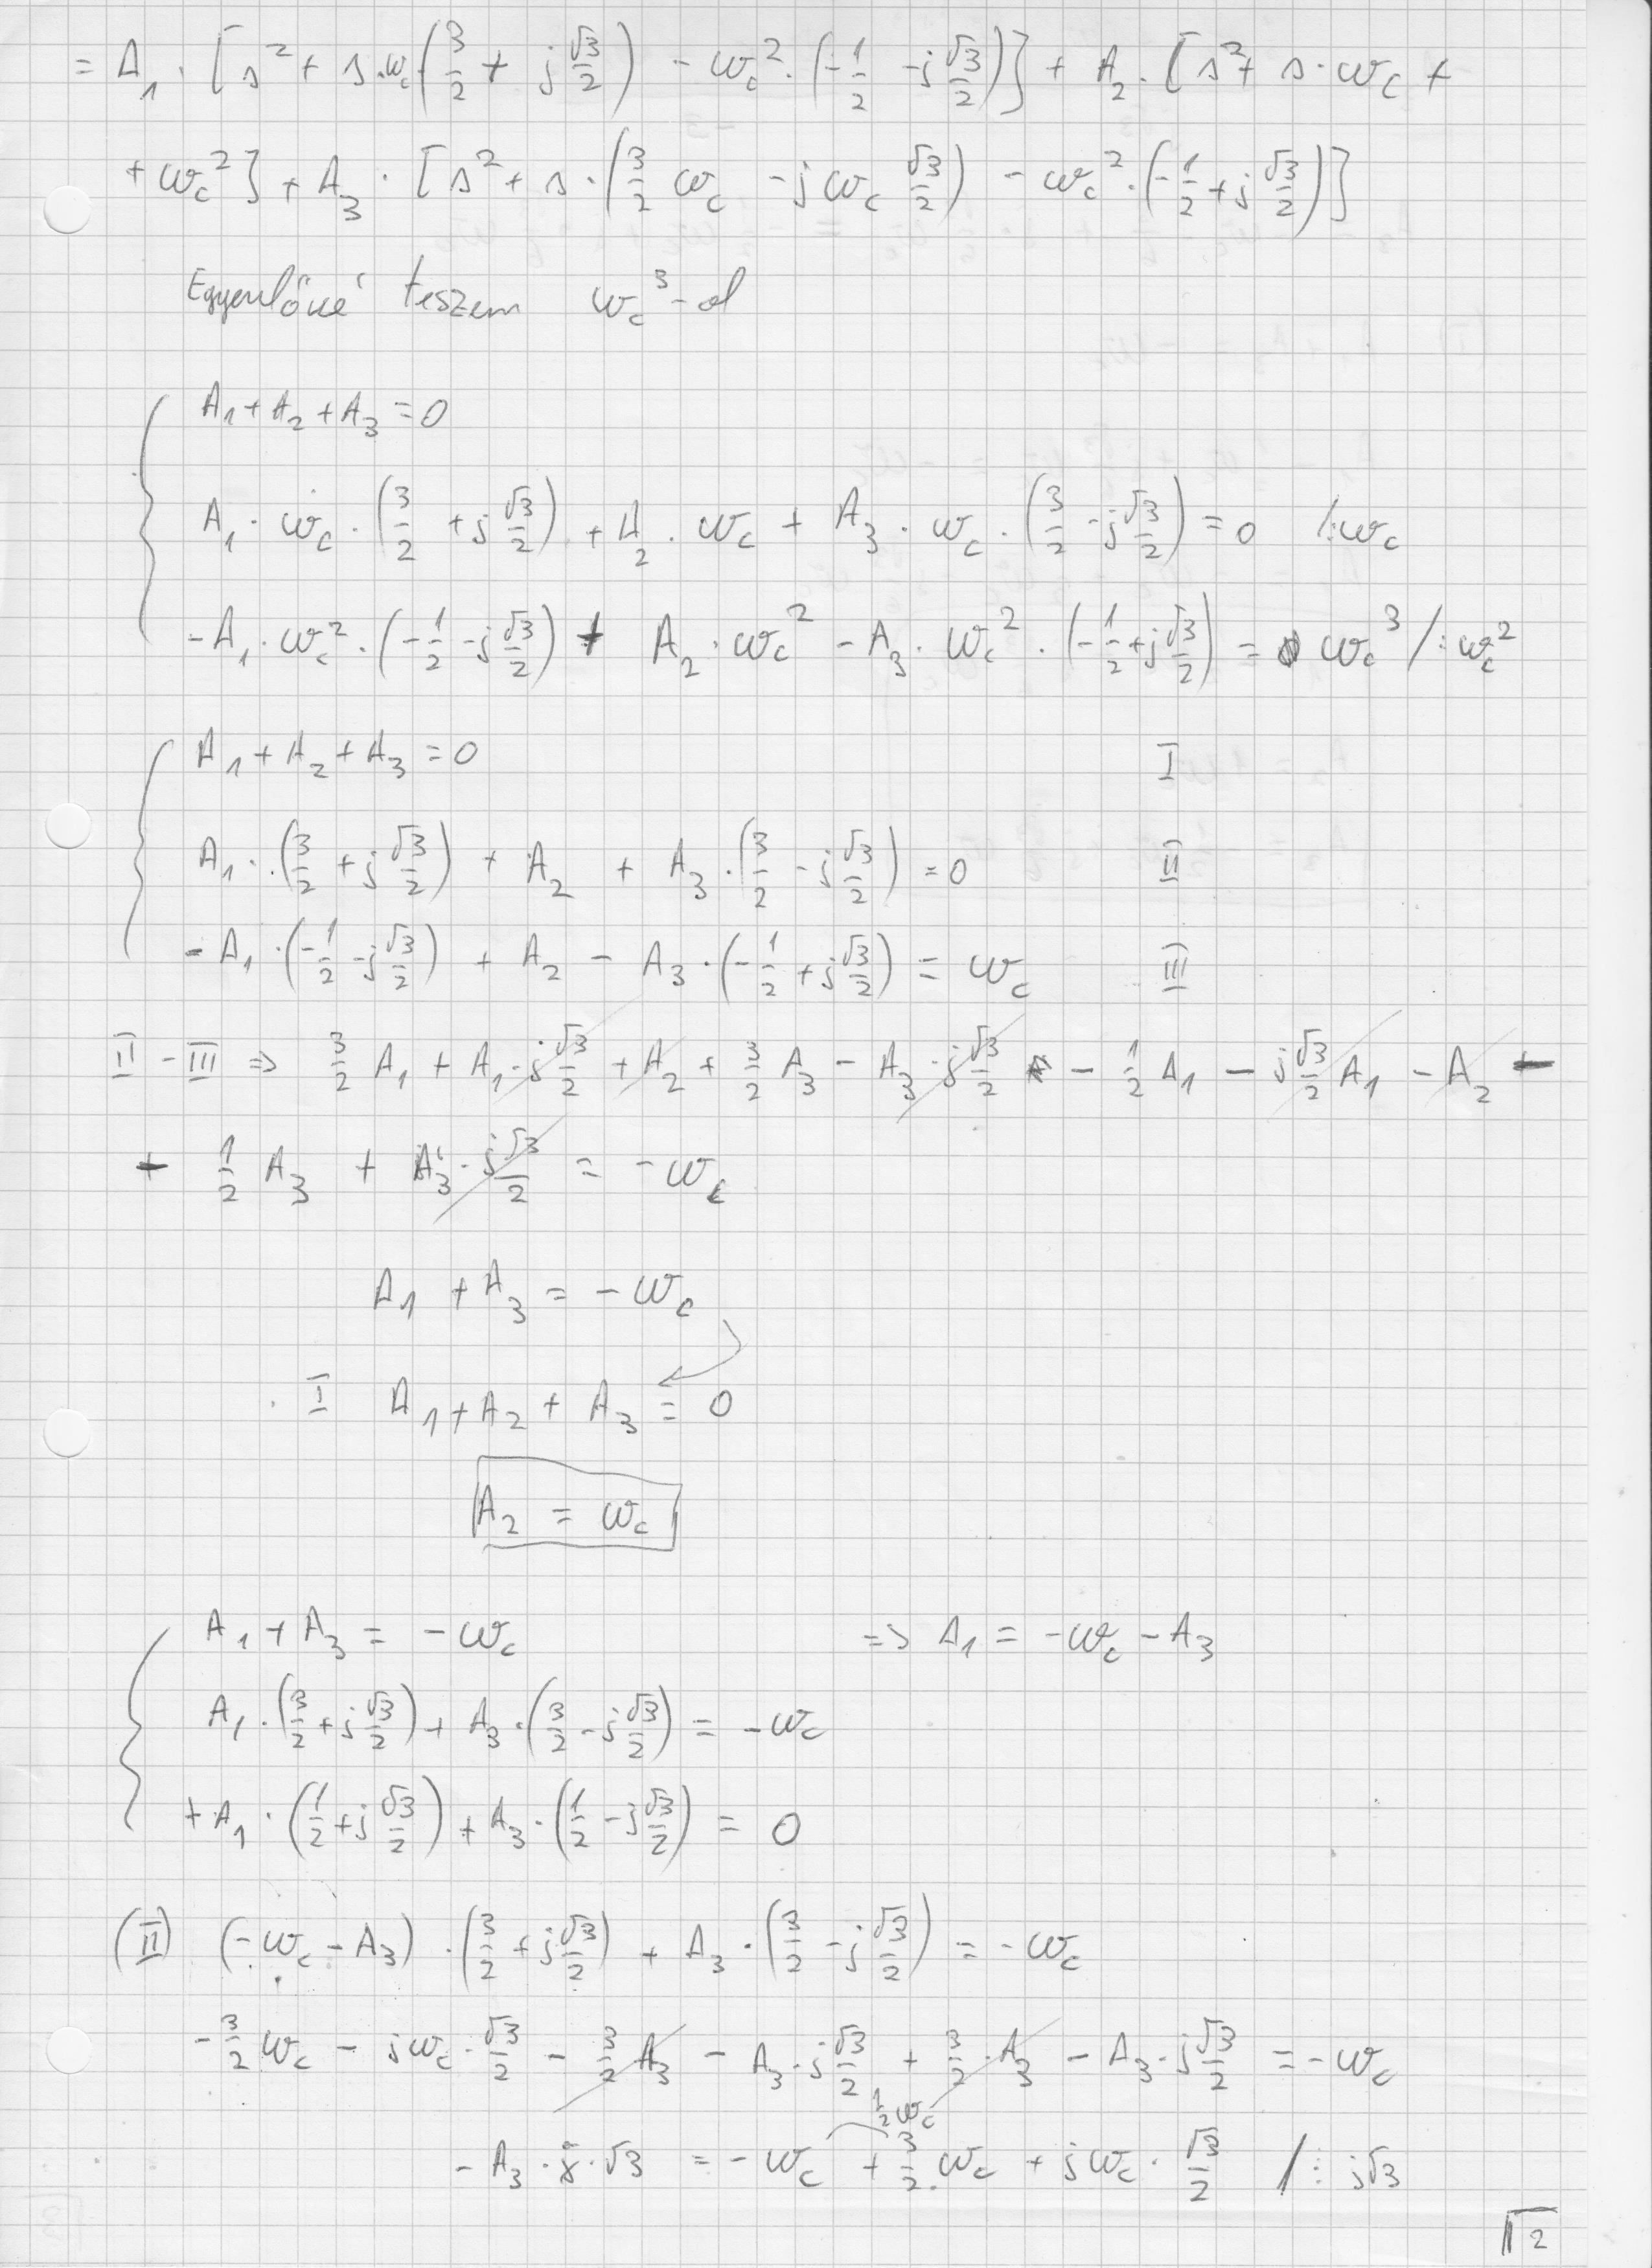 = A₁ · [s² + s·ω_c(3/2 + j√3/2) - ω_c²·(-1/2 - j√3/2)] + A₂·[s² + s·ω_c +
+ ω_c²] + A₃ · [s² + s·(3/2 ω_c - jω_c √3/2) - ω_c²·(-1/2 + j√3/2)]
Egyenlővé teszem ω_c³-al
A₁ + A₂ + A₃ = 0
A₁ · ω_c · (3/2 + j√3/2) + A₂ · ω_c + A₃ · ω_c · (3/2 - j√3/2) = 0 /:ω_c
-A₁ · ω_c² · (-1/2 - j√3/2) + A₂ · ω_c² - A₃ · ω_c² · (-1/2 + j√3/2) = ω_c³ /:ω_c²
A₁ + A₂ + A₃ = 0 I
A₁ · (3/2 + j√3/2) + A₂ + A₃ · (3/2 - j√3/2) = 0 II
-A₁ · (-1/2 - j√3/2) + A₂ - A₃ · (-1/2 + j√3/2) = ω_c III
II - III => 3/2 A₁ + A₁·j√3/2 + A₂ + 3/2 A₃ - A₃·j√3/2 - 1/2 A₁ - j√3/2 A₁ - A₂ -
- 1/2 A₃ + A₃·j√3/2 = -ω_c
A₁ + A₃ = -ω_c
I A₁ + A₂ + A₃ = 0
A₂ = ω_c
A₁ + A₃ = -ω_c => A₁ = -ω_c - A₃
A₁ · (3/2 + j√3/2) + A₃ · (3/2 - j√3/2) = -ω_c
+A₁ · (1/2 + j√3/2) + A₃ · (1/2 - j√3/2) = 0
(II) (-ω_c - A₃) · (3/2 + j√3/2) + A₃ · (3/2 - j√3/2) = -ω_c
-3/2 ω_c - jω_c · √3/2 - 3/2 A₃ - A₃·j√3/2 + 3/2 · A₃ - A₃·j√3/2 = -ω_c
1/2 ω_c
-A₃ · j · √3 = -ω_c + 3/2 ω_c + jω_c · √3/2 /: j√3
2